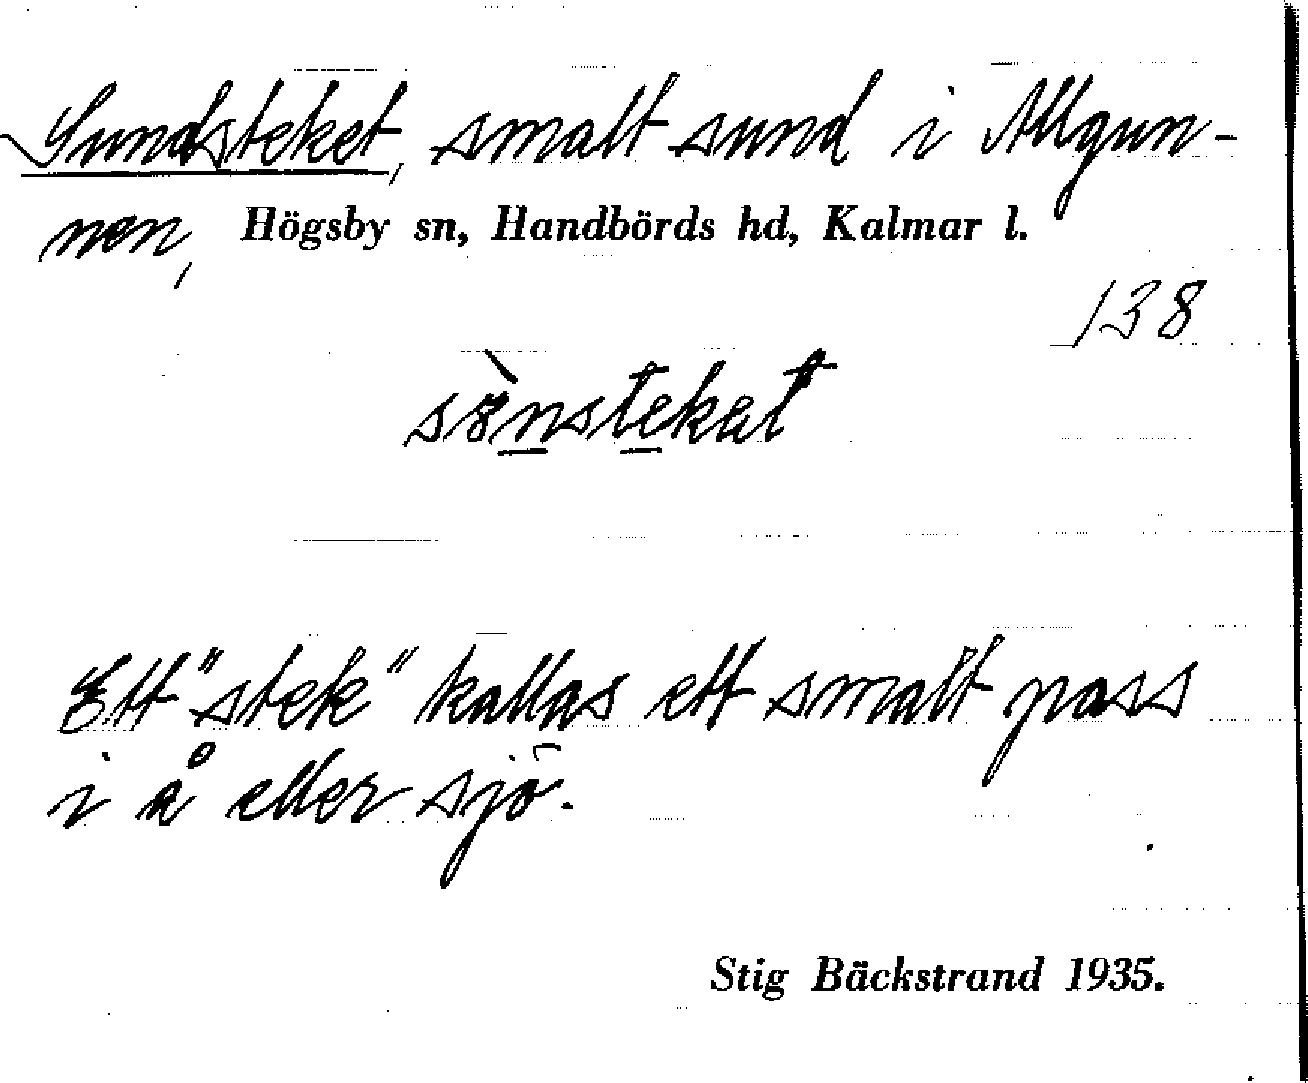 Sundsteket, smalt sund i Allgun-
nen, Högsby sn, Handbörds hd, Kalmar l.
138
Ett "stek" kallas ett smalt pass
i å eller sjö.
Stig Bäckstrand 1935.